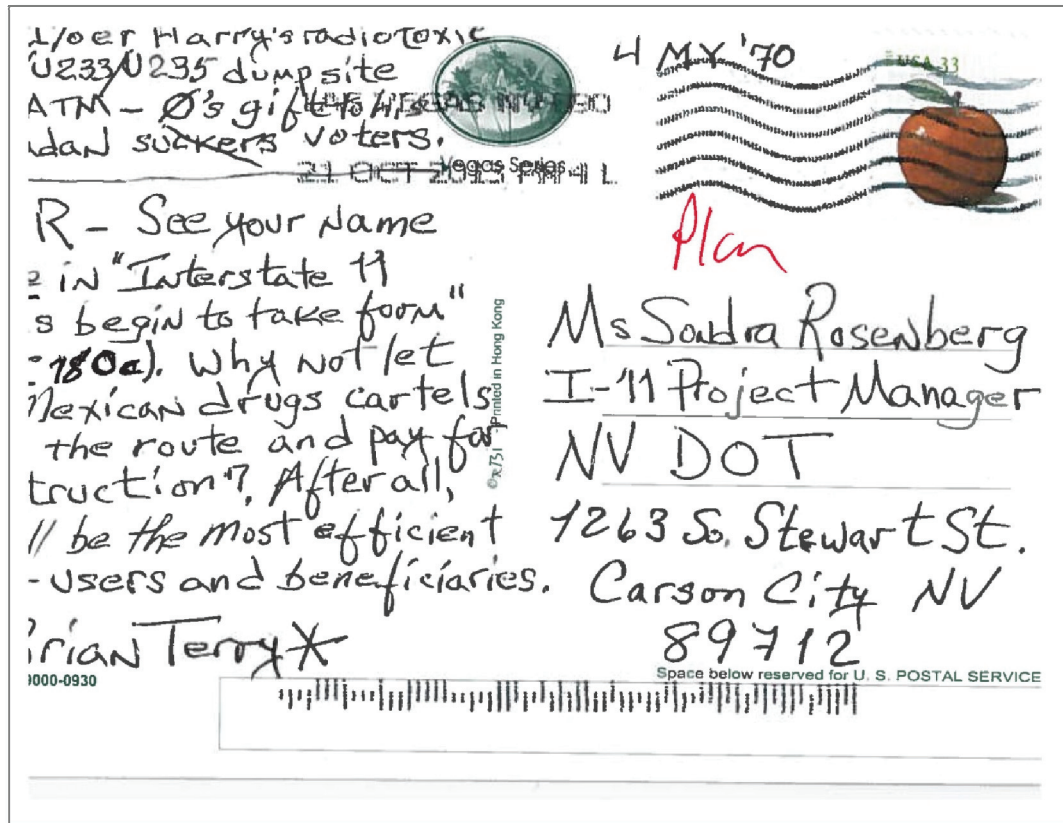 Harry's radiotoxic
U233/U235 dumpsite
ATM – Ø's gift to his
suckers voters.
LAS VEGAS NV 890
21 OCT 2015 PM 4 L
Vegas Series
4 MY '70
USA 33
Plan
R – See your name
in "Interstate 11
s begin to take form"
180a). Why not let
Mexican drugs cartels
the route and pay for
truction"? After all,
ll be the most efficient
-users and beneficiaries.
Brian Terry*
0000-0930
Printed in Hong Kong
Ms Sondra Rosenberg
I-11 Project Manager
NV DOT
1263 So. Stewart St.
Carson City NV
89712
Space below reserved for U. S. POSTAL SERVICE